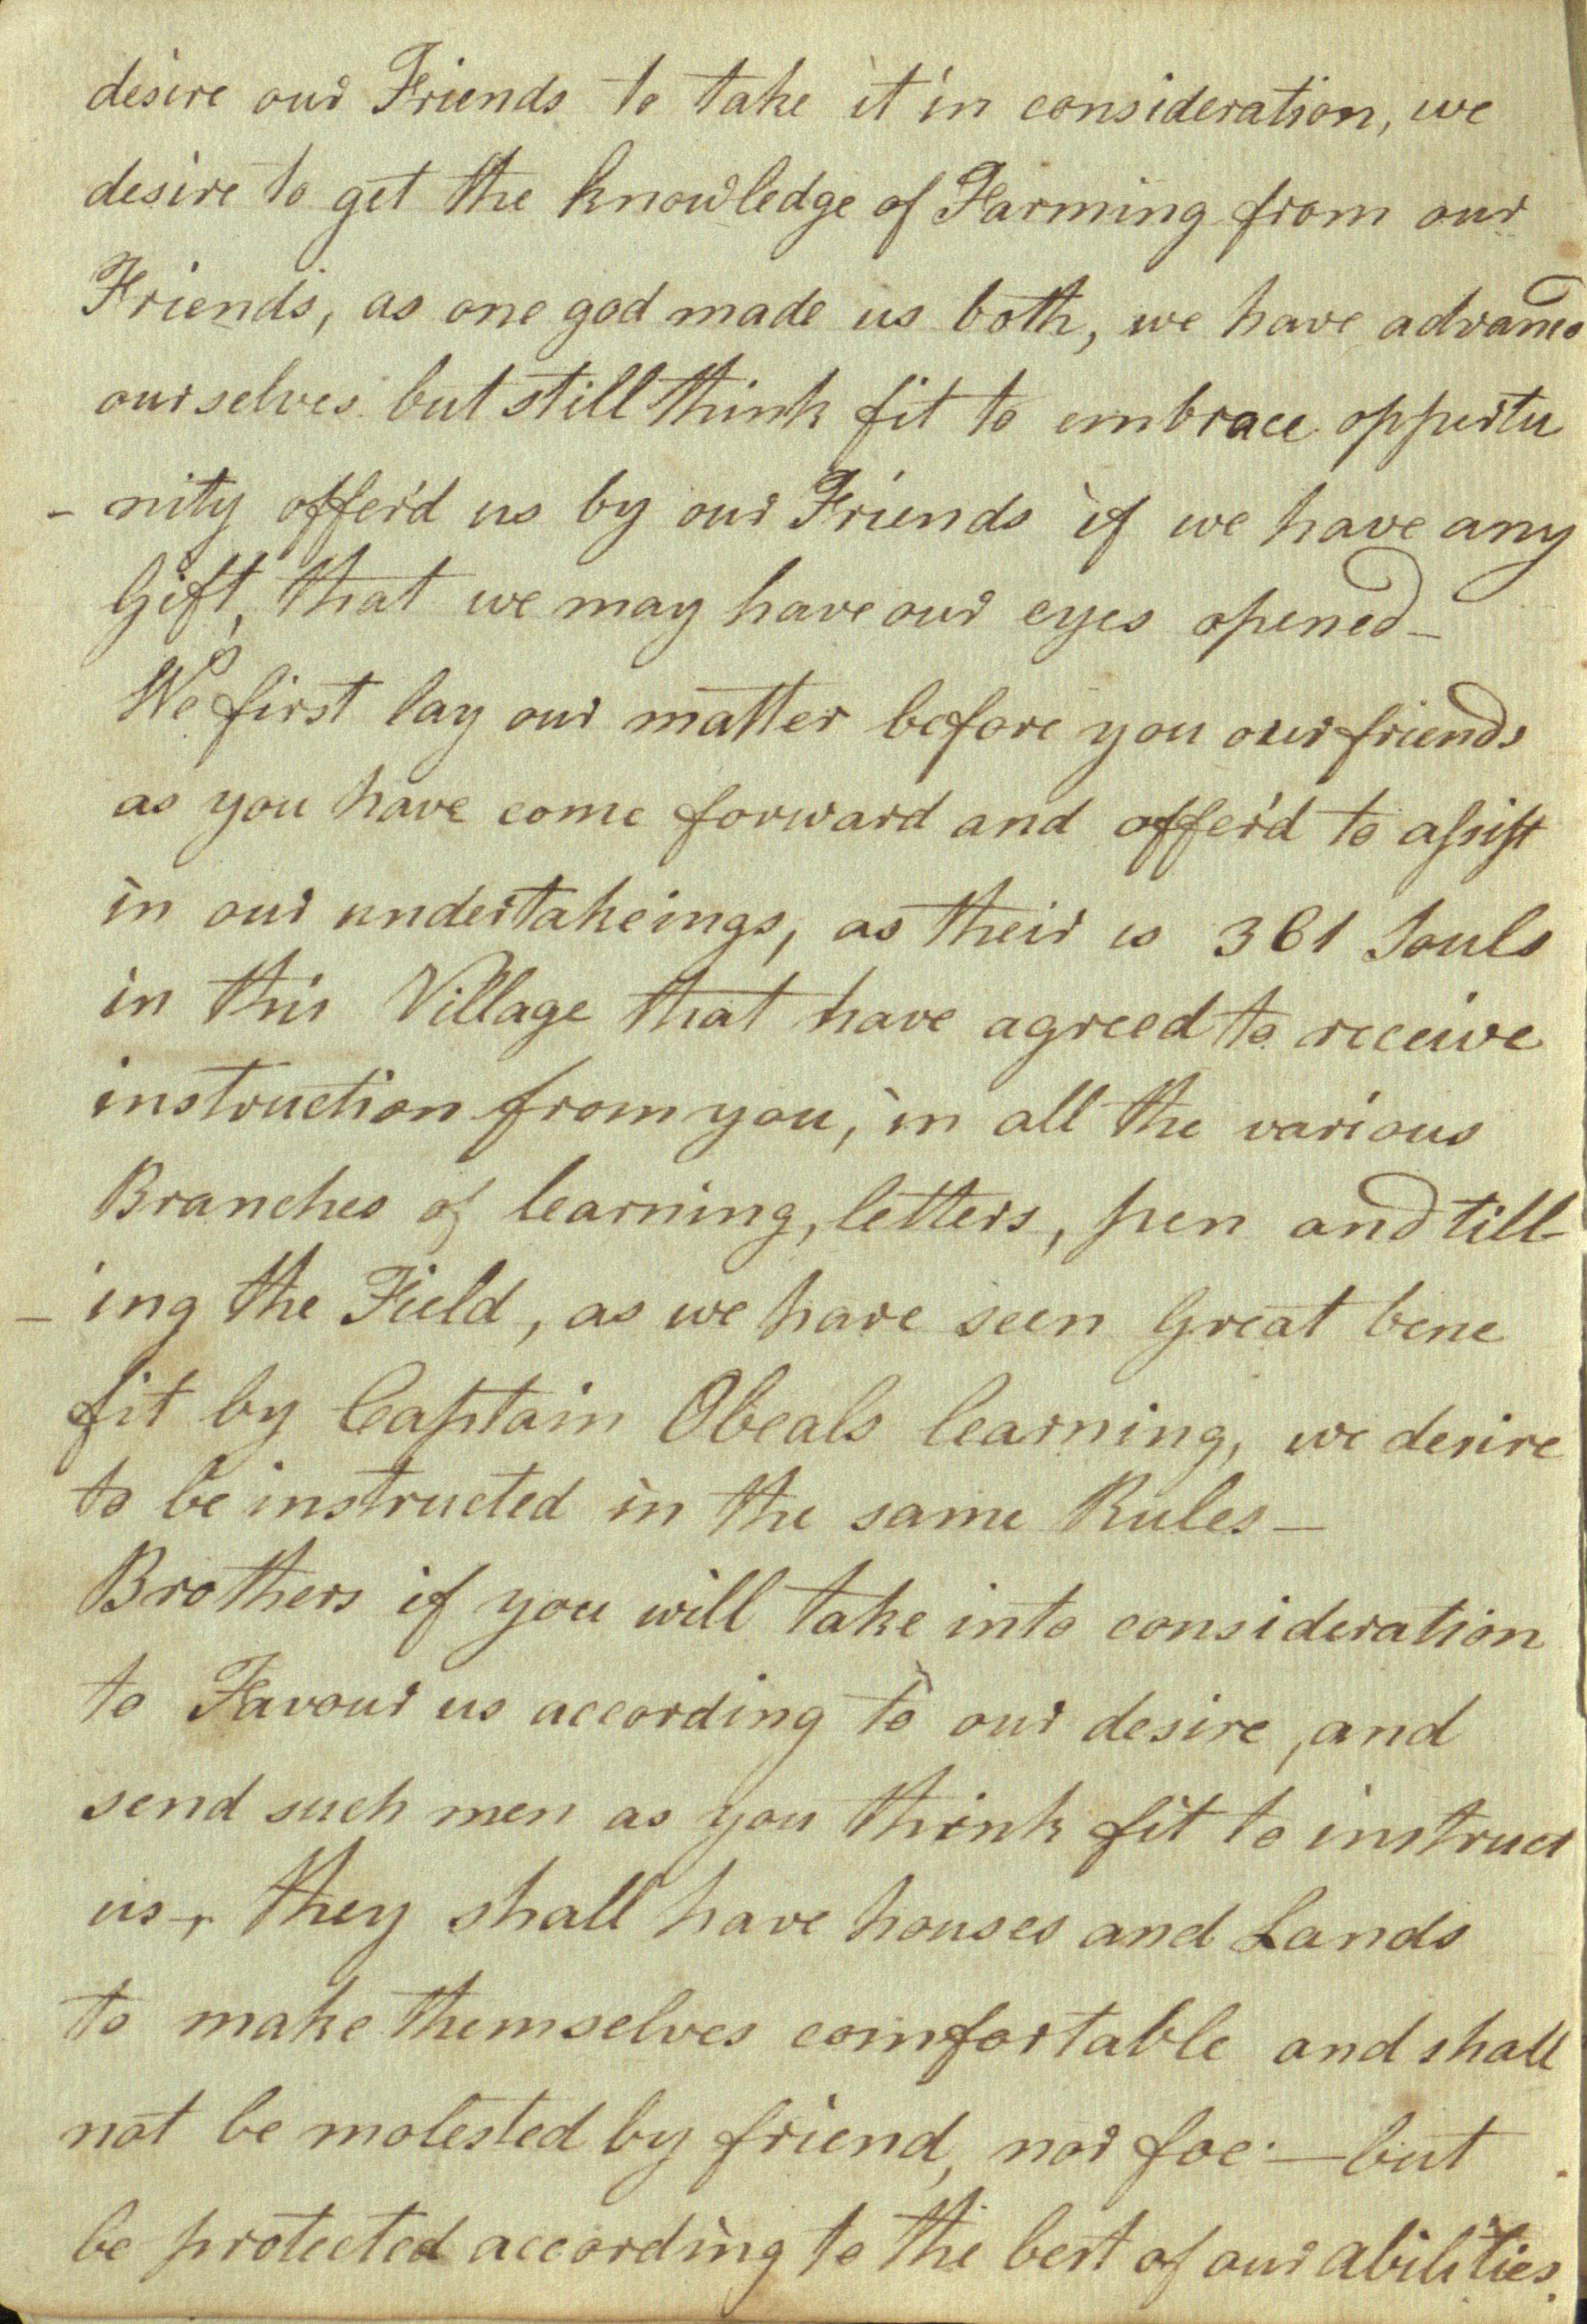 desire our Friends to take it in consideration, we
desire to get the knowledge of Farming from our
Friends, as one god made us both, we have advanc'd
ourselves but still think fit to embrace oppertu
- nity offer'd us by our Friends if we have any
Gift, that we may have our eyes opened —
We first lay our matter before you our friends
as you have come forward and offer'd to assist
in our undertakeings, as their is 361 Souls
in this Village that have agreed to receive
instruction from you, in all the various
Branches of learning, letters, pen and till-
- ing the Field, as we have seen Great bene
fit by Captain Obeals learning, we desire
to be instructed in the same Rules —
Brothers if you will take into consideration
to Favour us according to our desire, and
send such men as you think fit to instruct
us, they shall have houses and Lands
to make themselves comfortable and shall
not be molested by friend, nor foe — but
be protected according to the best of our abilities.